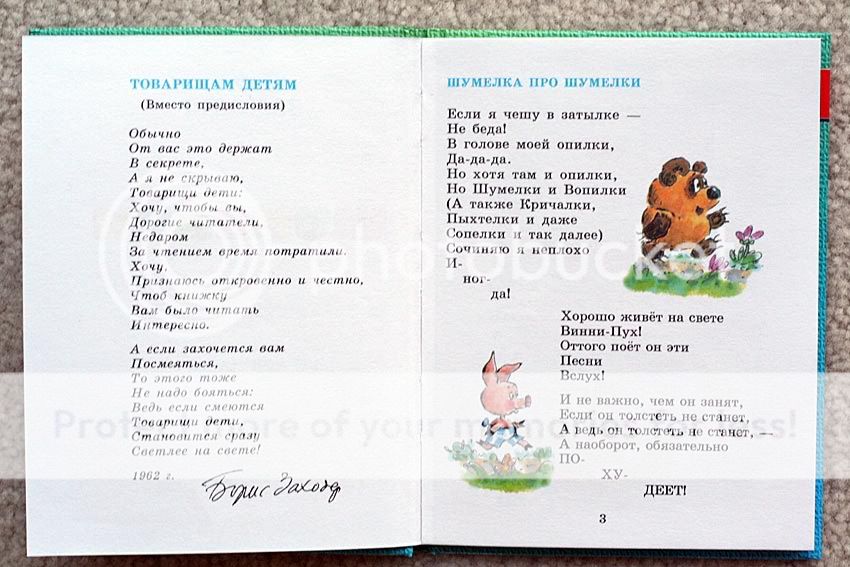 ТОВАРИЩАМ ДЕТЯМ
(Вместо предисловия)
Обычно
От вас это держат
В секрете,
А я не скрываю,
Товарищи дети:
Хочу, чтобы вы,
Дорогие читатели,
Недаром
За чтением время потратили.
Хочу,
Признаюсь откровенно и честно,
Чтоб книжку
Вам было читать
Интересно.
А если захочется вам
Посмеяться,
То этого тоже
Не надо бояться:
Ведь если смеются
Товарищи дети,
Становится сразу
Светлее на свете!
1962 г.
Борис Заходер
ШУМЕЛКА ПРО ШУМЕЛКИ
Если я чешу в затылке —
Не беда!
В голове моей опилки,
Да-да-да.
Но хотя там и опилки,
Но Шумелки и Вопилки
(А также Кричалки,
Пыхтелки и даже
Сопелки и так далее)
Сочиняю я неплохо
И-
ног-
да!
Хорошо живёт на свете
Винни-Пух!
Оттого поёт он эти
Песни
Вслух!
И не важно, чем он занят,
Если он толстеть не станет,
А ведь он толстеть не станет, —
А наоборот, обязательно
ПО-
ХУ-
ДЕЕТ!
3
photobucket
Protect more of your memories for less!